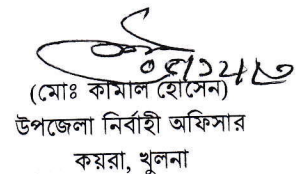 (মোঃ কামাল হোসেন)
উপজেলা নির্বাহী অফিসার
কয়রা, খুলনা